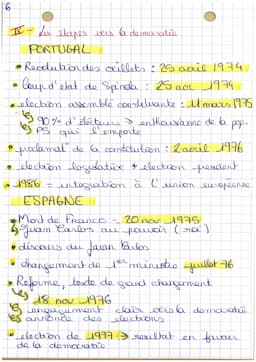 6
II - Les étapes vers la democratie
PORTUGAL
• Revolution des œillets : 25 avril 1974
• Coup d'état de Spinola : 25 1974
• election assemblé constituante : 1975
90% d'électeurs → enthousiasme de la pop.
PS qui l'emporte
• proclamat° de la constitution : 2 avril 1976
• election legislative + election president
• 1986 = integration à l'union européenne
ESPAGNE
• Mort de Franco - 20 nov 1975
Juan Carlos au pouvoir (roi)
• discours du Juan Carlos
• changement de 1er ministre juillet 76
• Reforme, texte de grand changement
18 nov 1976
engagement clair vers la democratie
annonce des elections
• election de 1977 → resultat en faveur
de la democratie